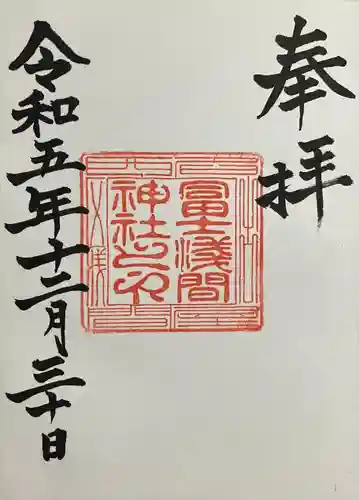 奉拝
冨士浅間
神社之印
令和五年十二月三十日